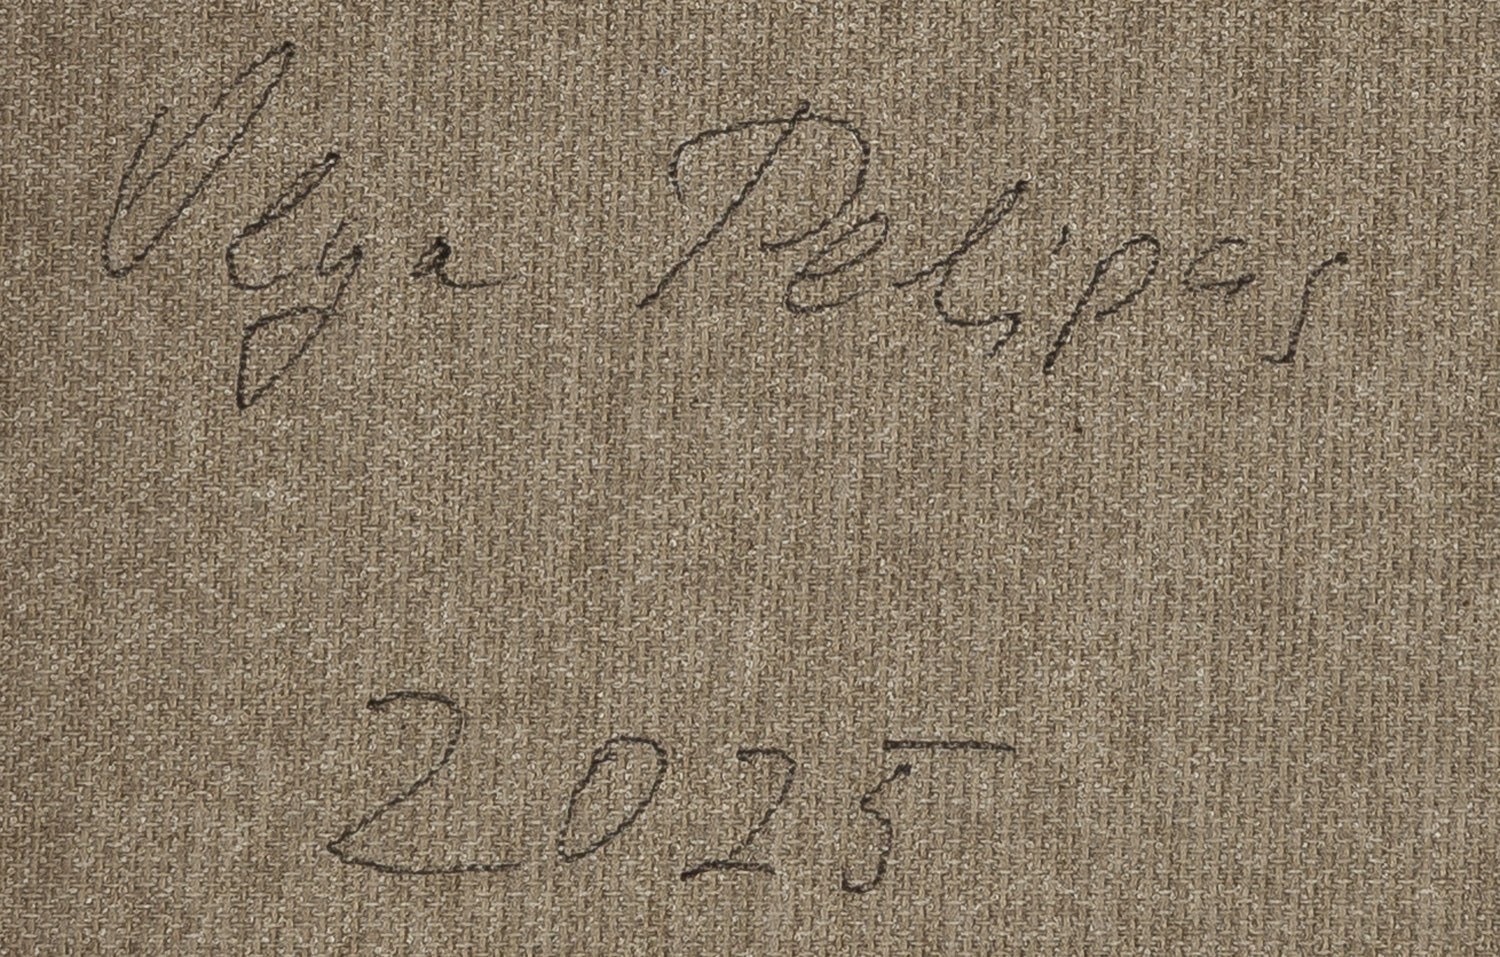 Olga Pelipas
2025